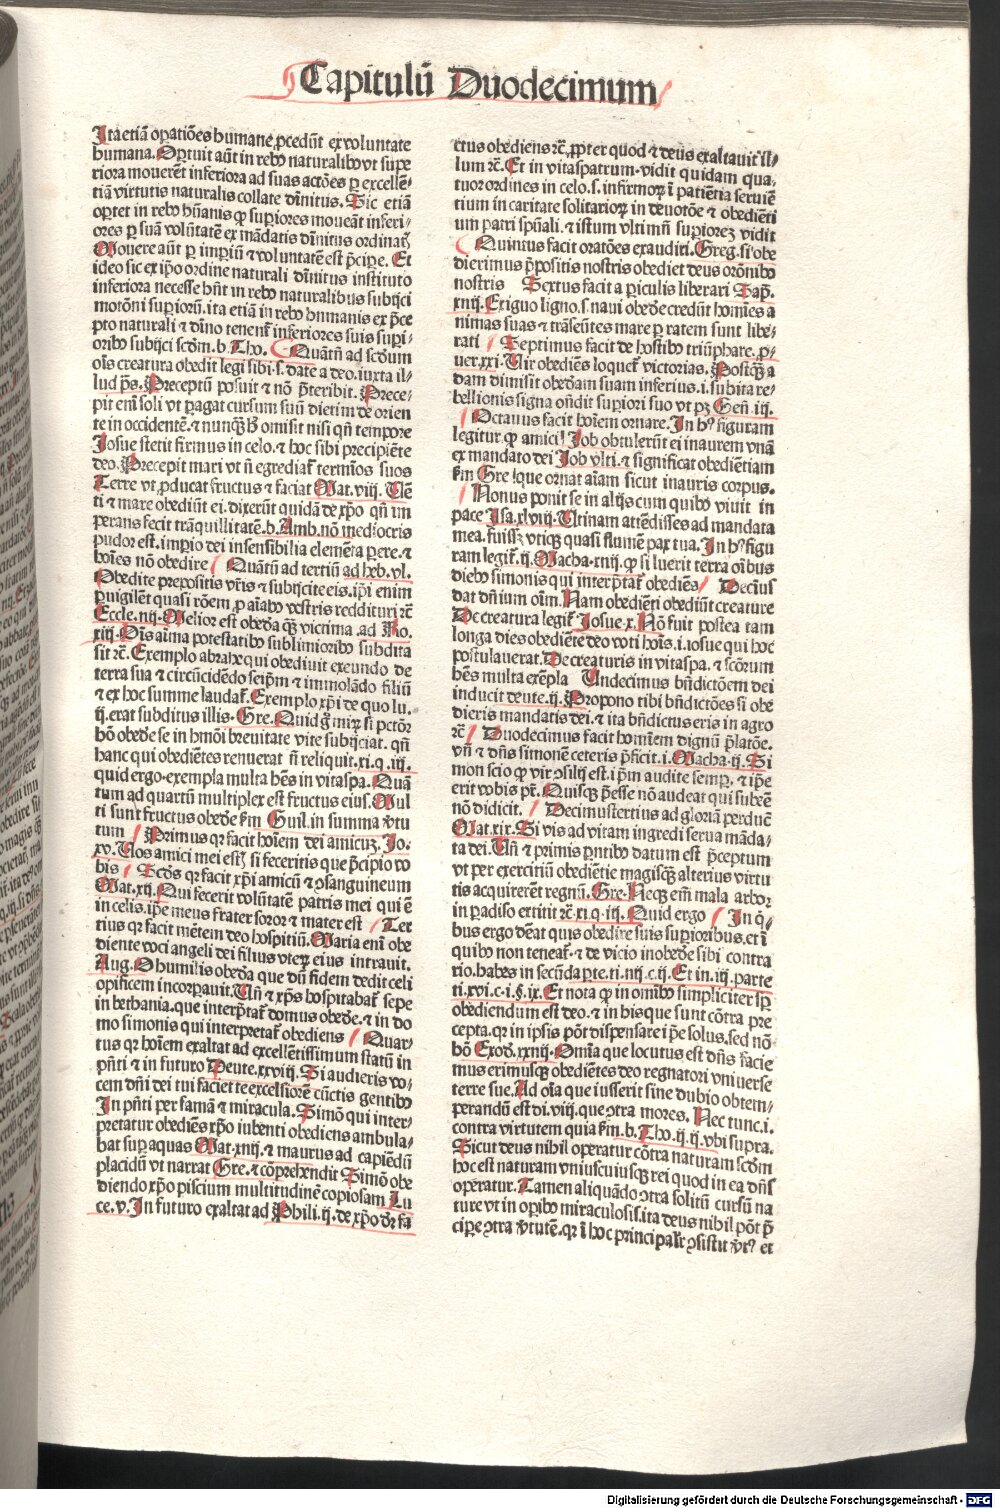 Capitulū Duodecimum
Ita etiā oꝑatiōes humane ꝓcedūt ex voluntate
humana. Oꝑtuit aūt in rebꝰ naturalibꝰ vt supe
riora mouerēt inferiora ad suas actōes ꝑ excellē⸗
tiā virtutis naturalis collate diuinitus. Sic etiā
oꝑtet in rebꝰ hūanis ꝙ superiores moueāt inferi⸗
ores ꝑ suā volūtatē ex mādatis diuinitus ordinatꝭ
Mouere aūt ꝑ imperiū ⁊ voluntatē est p̄cipe. Et
ideo sic ex ip̄o ordine naturali diuinitus instituto
inferiora necesse hn̄t in rebꝰ naturalibus subijci
motōni superiorū. ita etiā in rebꝰ humanis ex p̄ce
pto naturali ⁊ diuino tenent᷑ inferiores suis supi⸗
oribꝰ subijci scd̄m. b. Tho. Quātū ad scd̄um
oīs creatura obedit legi sibi. s. date a deo. iuxta il⸗
lud ps̄. Preceptū posuit ⁊ nō p̄teribit. Prece⸗
pit em̄ soli vt ꝑagat cursum suū dietim de orien
te in occidentē. ⁊ nunqͣꝫ hͦ omisit nisi qn̄ tempore
Josue stetit firmus in celo. ⁊ hoc sibi precipiēte
deo. Precepit mari vt nō egrediat᷑ termīos suos
Terre vt ꝓducat fructus ⁊ faciat Mat. viij. Vē
ti ⁊ mare obediūt ei. dixerūt quidā de xp̄o qn̄ im
perans fecit trāquillitatē. b. Amb. nō mediocris
pudor est. imperio dei insensibilia elemēta ꝑere. ⁊
hoīes nō obedire Quātū ad tertiū ad heb. vl.
Obedite prepositis vr̄is ⁊ subijcite eis. ip̄i enim
ꝑuigilēt quasi rōem ꝓ aīabꝰ vestris reddituri ⁊c̄
Eccle. iiij. Melior est obedīa qͣꝫ victima. ad Ro.
xiij. Oīs aīma potestatibꝰ sublimioribꝰ subdita
sit ⁊c̄. Exemplo abrahe qui obediuit exeundo de
terra sua ⁊ circūcidēdo seip̄m ⁊ immolādo filiū
⁊ ex hoc summe laudat᷑. Exemplo xp̄i de quo lu.
ij. erat subditus illis. Gre. Quid gͦ miꝝ si pctōr
hō obede se in hmōi breuitate vite subijciat. qn̄
hanc qui obediētes renuerat nō reliquit. xi. q. iij.
quid ergo. exempla multa hēs in vitaspa. Quā
tum ad quartū multiplex est fructus eius. Mul
ti sunt fructus obedīe ẜm Guil. in summa v̓tu
tum Primus qꝛ facit hoīem dei amicuꝫ. Jo.
xv. Uos amici mei estꝭ si feceritis que p̄cipio vo
bis Scd̄s qꝛ facit xp̄i amicū ⁊ ꝯsanguineum
Mat. xij. Qui fecerit volūtatē patris mei qui ē
in celis. ip̄e meus frater soror ⁊ mater est Ter
tius qꝛ facit mētem deo hospitiū. Maria enī obe
diente voci angeli dei filius vterū eius intrauit.
Aug. O humilis obedīa que dū fidem dedit celi
opificem incorpauit. Un̄ ⁊ xp̄s hospitabat᷑ sepe
in bethania. que interp̄tat᷑ domus obedīe. ⁊ in do
mo simonis qui interpretat᷑ obediens Quar⸗
tus qꝛ hoīem exaltat ad excellētissimum statū in
pn̄ti ⁊ in futuro Deute. xxviij. Si audieris vo⸗
cem dn̄i dei tui faciet te excelsiorē cūctis gentibꝰ
In pn̄ti per famā ⁊ miracula. Simō qui inter⸗
pretatur obediēs xp̄o iubenti obediens ambula⸗
bat suꝑ aquas Mat. xiiij. ⁊ maurus ad capiēdū
placidū vt narrat Gre. ⁊ cōprehendit Simō obe
diendo xp̄o piscium multitudinē copiosam Lu
ce. v. In futuro exaltat ad Phili. ij. de xp̄o dr̄ fa
ctus obediens ⁊c̄. ꝓpter quod ⁊ deus exaltauit il⸗
lum ⁊c̄. Et in vitaspatrum. vidit quidam qua⸗
tuor ordines in celo. s. infirmoꝝ ī patiētia seruiē
tium in caritate solitarioꝝ in deuotōe ⁊ obediēti
um patri spūali. ⁊ istum vltimū superioreꝫ vidit
Quintus facit oratōes exaudiri. Greg. si obe
dierimus p̄positis nostris obediet deus orōnibꝰ
nostris Sextus facit a ꝑiculis liberari Sap̄.
xiiij. Exiguo ligno. s. naui obedīe credūt homīes a
nimas suas ⁊ trāseūtes mare ꝑ ratem sunt libe⸗
rati Septimus facit de hostibꝰ triūphare. ꝓ⸗
uer. xxi. Uir obediēs loquet᷑ victorias. Postqͣꝫ a
dam dimisit obedīam suam inferius. i. subita re⸗
bellionis signa on̄dit superiori suo vt pꝫ Gen̄ iij.
Octauus facit hoīem ornare. In hꝰ figuram
legitur ꝙ amici Job obtulerūt ei inaurem vnā
ex mandato dei Job vlti. ⁊ significat obediētiam
ẜm Gre. que ornat aīam sicut inauris corpus.
Nonus ponit se in alijs cum quibꝰ viuit in
pace Isa. xlviij. Utinam attēdisses ad mandata
mea. fuissꝫ vtiqꝫ quasi flumē pax tua. In hꝰ figu
ram legit᷑. ij. Macha. xiiij. ꝙ siluerit terra oībus
diebꝰ simonis qui interp̄tat᷑ obediēs Decīus
dat dn̄ium oīm. Nam obediēti obediūt creature
De creatura legit᷑ Josue. x. Nō fuit postea tam
longa dies obediēte deo voti hoīs. i. iosue qui hoc
postulauerat. De creaturis in vitaspa. ⁊ scōrum
hēs multa exēpla Undecimus bn̄dictōem dei
inducit deute. ij. Propono tibi bn̄dictōes si obe
dieris mandatis dei. ⁊ ita bn̄dictus eris in agro
⁊c̄ Duodecimus facit homīem dignū p̄latōe.
vn̄ ⁊ dn̄s simonē ceteris p̄ficit. i. Macha. ij. Si
mon scio ꝙ vir ꝯsilij est. i. ip̄m audite semꝑ. ⁊ ip̄e
erit vobis pr̄. Quisqꝫ p̄esse nō audeat qui subēē
nō didicit. Decimustertius ad gloriā perducē
Mat. xix. Si vis ad vitam ingredi serua māda⸗
ta dei. Un̄ ⁊ primis ꝑntibꝰ datum est p̄ceptum
vt per exercitiū obediētie magisqꝫ alterius virtu
tis acquirerēt regnū. Gre. Neqꝫ em̄ mala arbor
in ꝑadiso extitit ⁊c̄. xi. q. iij. Quid ergo In q̄⸗
bus ergo debeat quis obedire suis superioribus. et ī
quibꝰ non teneat᷑. ⁊ de vicio inobedīe sibi contra
rio. habes in secūda ꝑte. ti. iiij. c. ij. Et in. iij. parte
ti. xvi. c. i. §. ix. Et nota ꝙ in oībꝰ simpliciter sp̄
obediendum est deo. ⁊ in hisque sunt cōtra pre
cepta. qꝛ in ipsis pōt dispensare ip̄e solus. sed nō
hō Exod̄. xxiiij. Omīa que locutus est dn̄s facie
mus erimusqꝫ obediētes deo regnatori vniuerse
terre sue. Ad oīa que iusserit sine dubio obtem⸗
perandū est di. viij. que ꝯtra mores. Nec tunc. i.
contra virtutem quia ẜm. b. Tho. ij. ij. vbi supra.
Sicut deus nihil operatur cōtra naturam scd̄m
hoc est naturam vniuscuiusqꝫ rei quod in ea dn̄s
operatur. Tamen aliquādo ꝯtra solitū cursū na
ture vt in oꝑibꝰ miraculosis. ita deus nihil pōt p̄
cipe ꝯtra v̓tutē. qꝛ ī hoc principalit᷑ ꝯsistit v̓tꝰ et
Digitalisierung gefördert durch die Deutsche Forschungsgemeinschaft - DFG